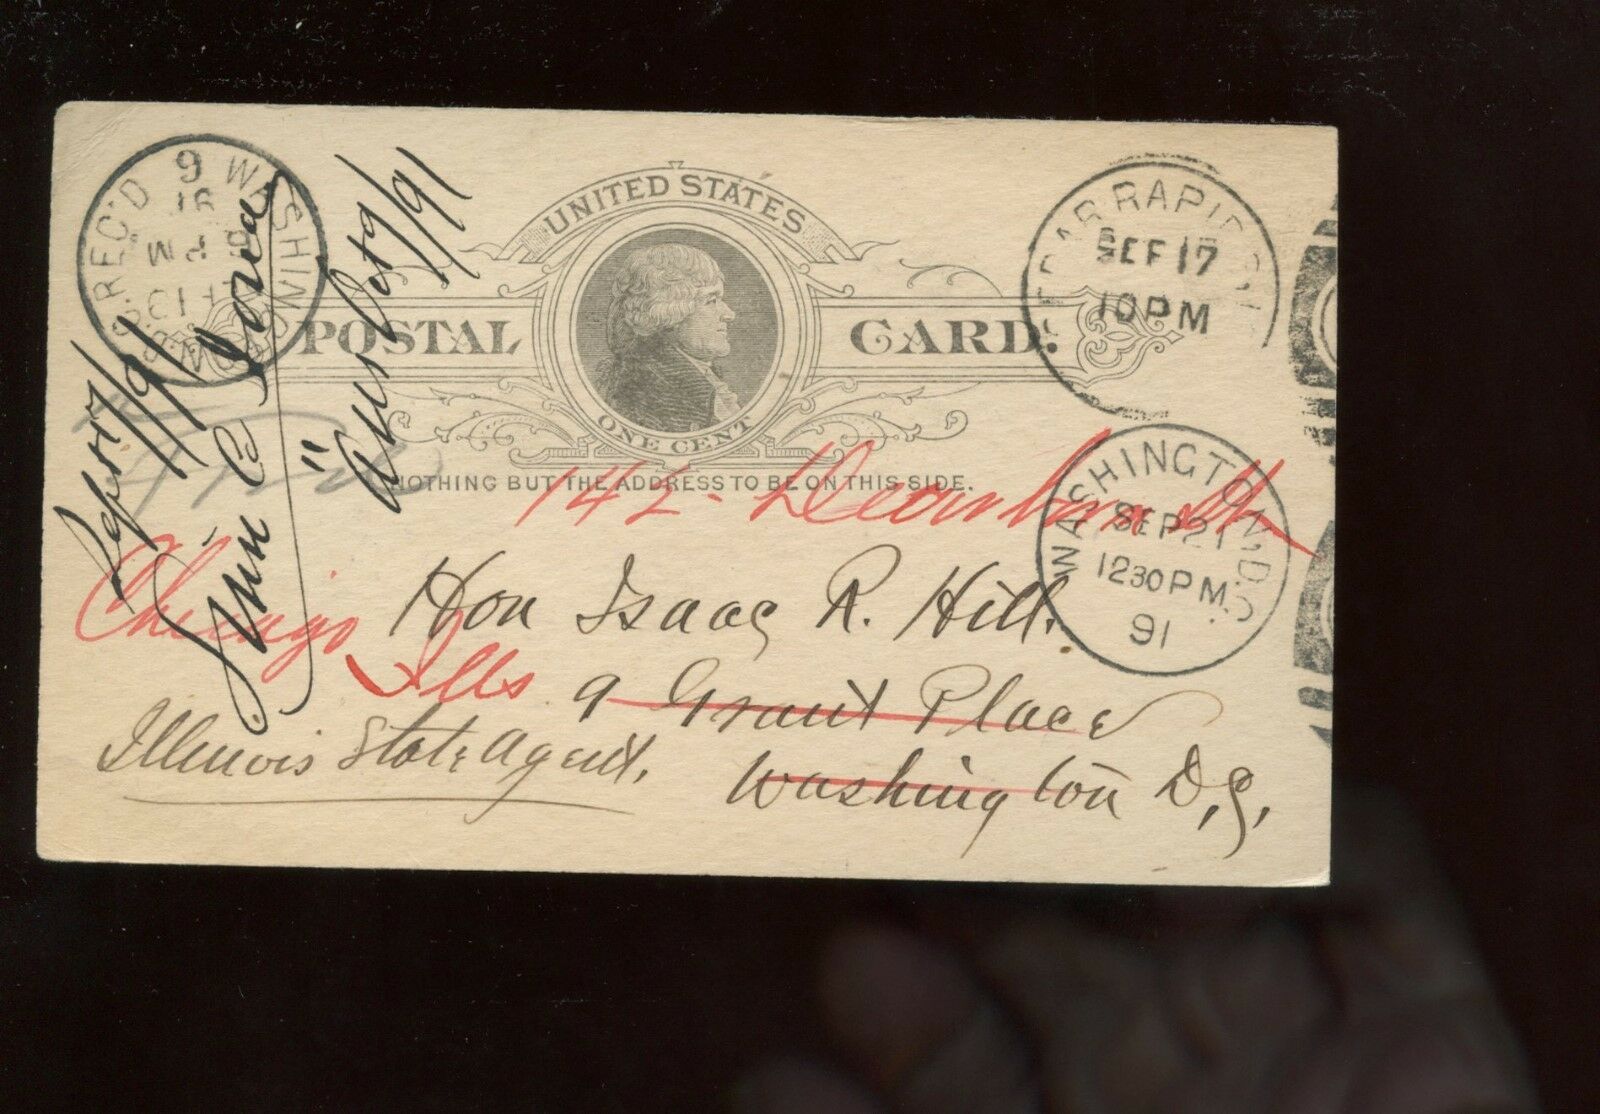 UNITED STATES
POSTAL CARD.
ONE CENT
NOTHING BUT THE ADDRESS TO BE ON THIS SIDE.
REC'D 9 WASHING
91
P M
CEDAR RAPIDS
SEP 17
10 PM
WASHINGTON, D.C.
SEP 21
12 30 P M.
91
Sept 17/91
John C
" Ans Oct 9/91
142 - Dearborn St
Chicago
Ills
Hon Isaac R. Hill.
9 Grant Place
Washington D.C.
Illinois State Agent.